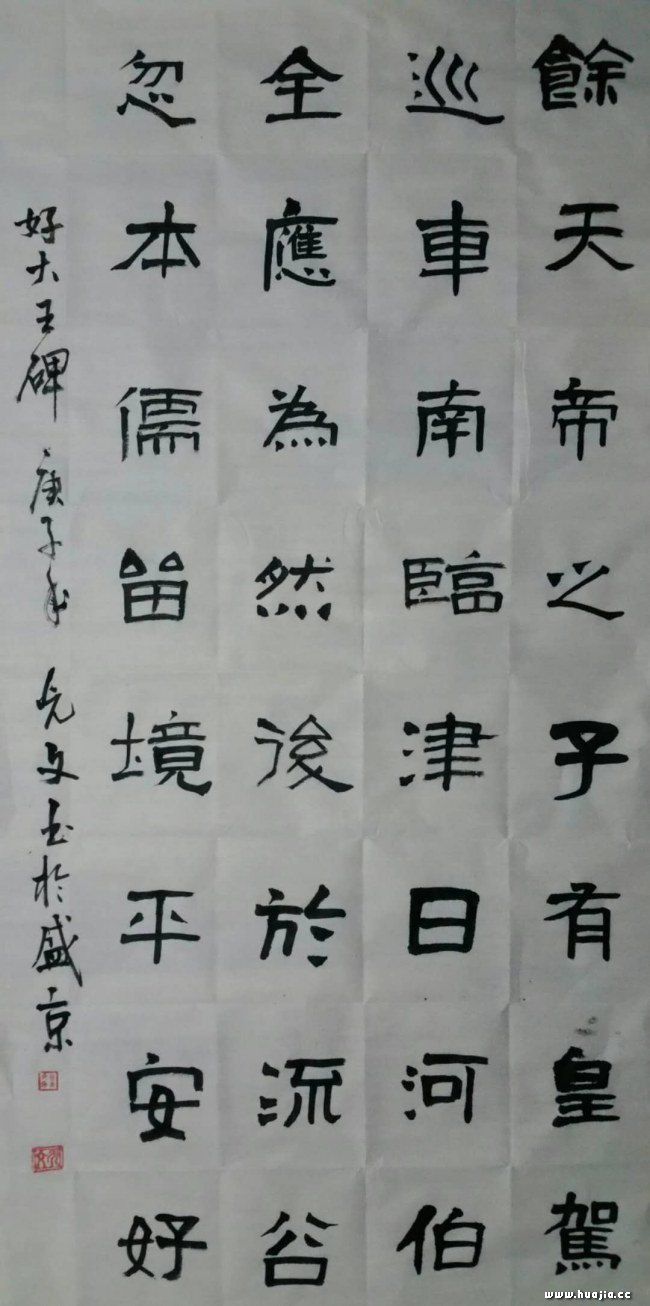 餘天帝之子有皇駕
巡車南臨津日河伯
全應為然後於流谷
忽本儒留境平安好
好大王碑 庚子年 允文书於盛京
www.huajia.cc